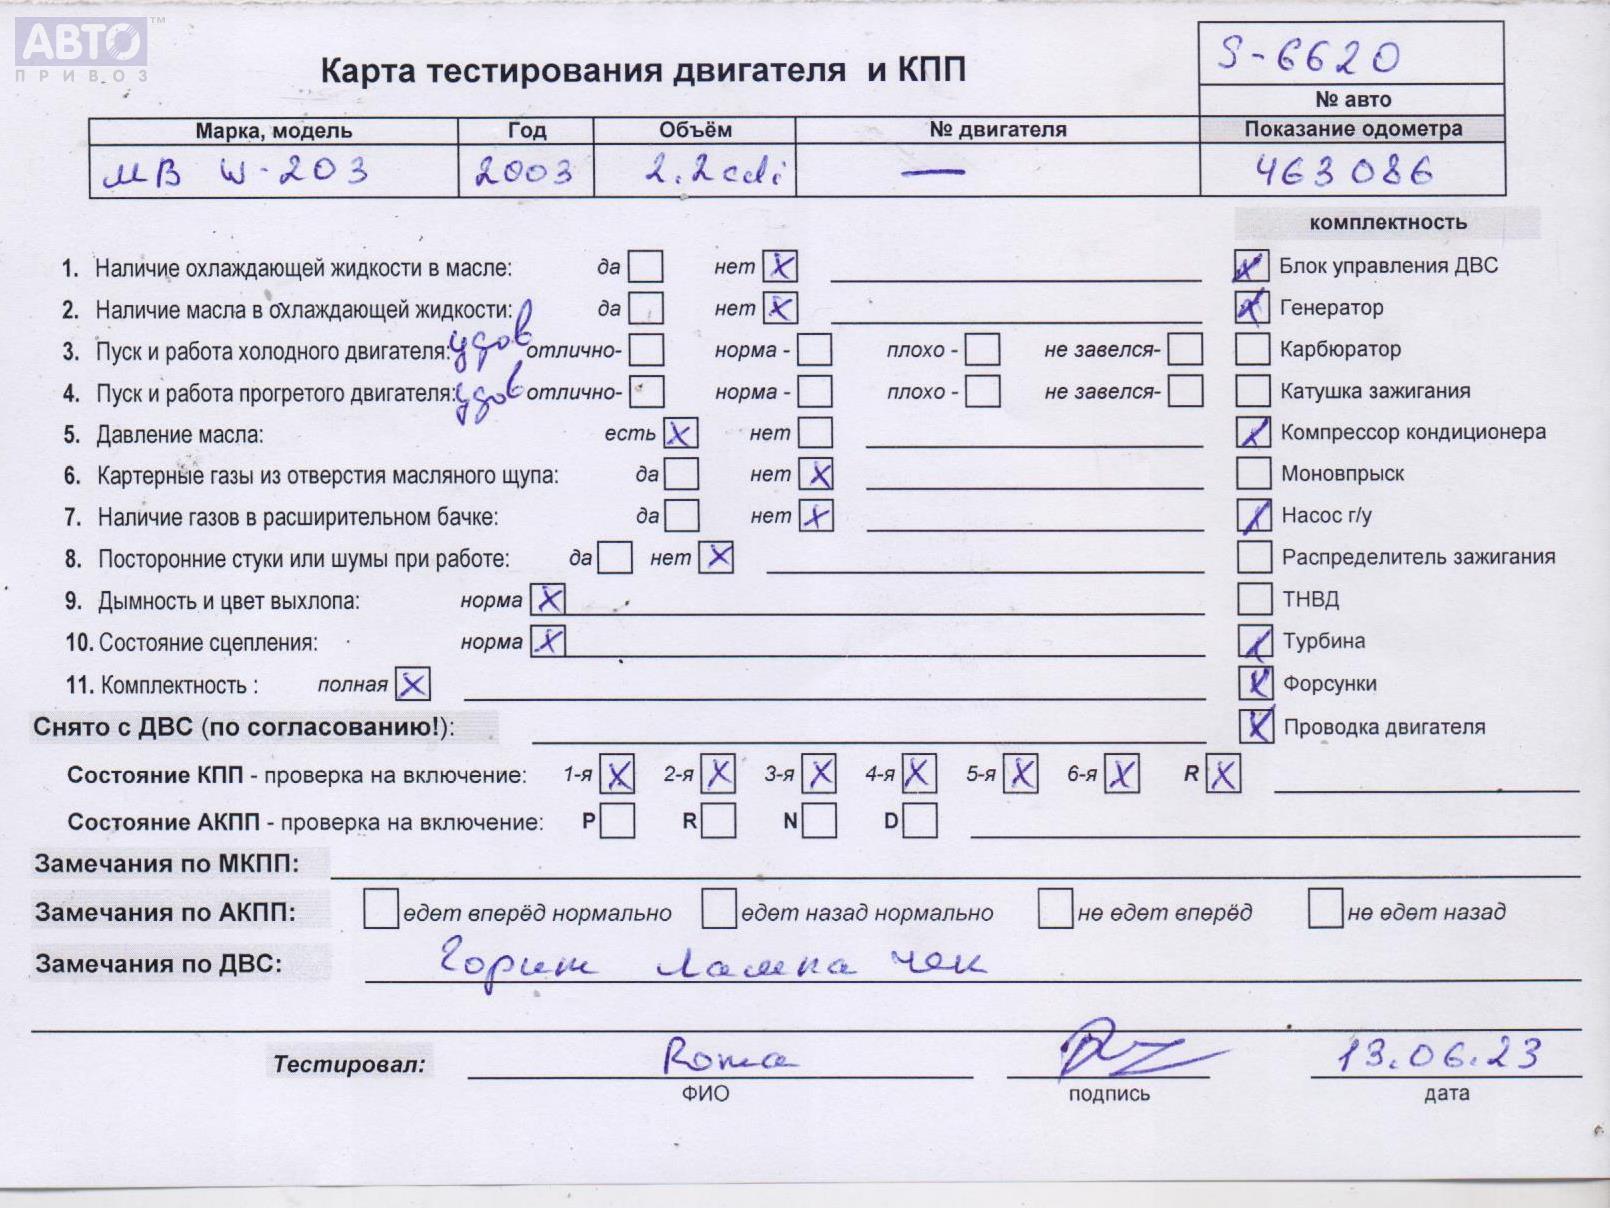 АВТО™
ПРИВОЗ
S-6620
Карта тестирования двигателя и КПП
№ авто
Марка, модель Год Объём № двигателя Показание одометра
МВ W-203 2003 2.2cdi — 463086
комплектность
1. Наличие охлаждающей жидкости в масле: да нет X Блок управления ДВС
2. Наличие масла в охлаждающей жидкости: да нет X Генератор
3. Пуск и работа холодного двигателя: удов отлично- норма - плохо - не завелся- Карбюратор
4. Пуск и работа прогретого двигателя: удов отлично- норма - плохо - не завелся- Катушка зажигания
5. Давление масла: есть X нет Компрессор кондиционера
6. Картерные газы из отверстия масляного щупа: да нет X Моновпрыск
7. Наличие газов в расширительном бачке: да нет X Насос г/у
8. Посторонние стуки или шумы при работе: да нет X Распределитель зажигания
9. Дымность и цвет выхлопа: норма X ТНВД
10. Состояние сцепления: норма X Турбина
11. Комплектность : полная X Форсунки
Снято с ДВС (по согласованию!): Проводка двигателя
Состояние КПП - проверка на включение: 1-я X 2-я X 3-я X 4-я X 5-я X 6-я X R X
Состояние АКПП - проверка на включение: P R N D
Замечания по МКПП:
Замечания по АКПП: едет вперёд нормально едет назад нормально не едет вперёд не едет назад
Замечания по ДВС: Горит лампа чек
Тестировал: Roma 13.06.23
ФИО подпись дата